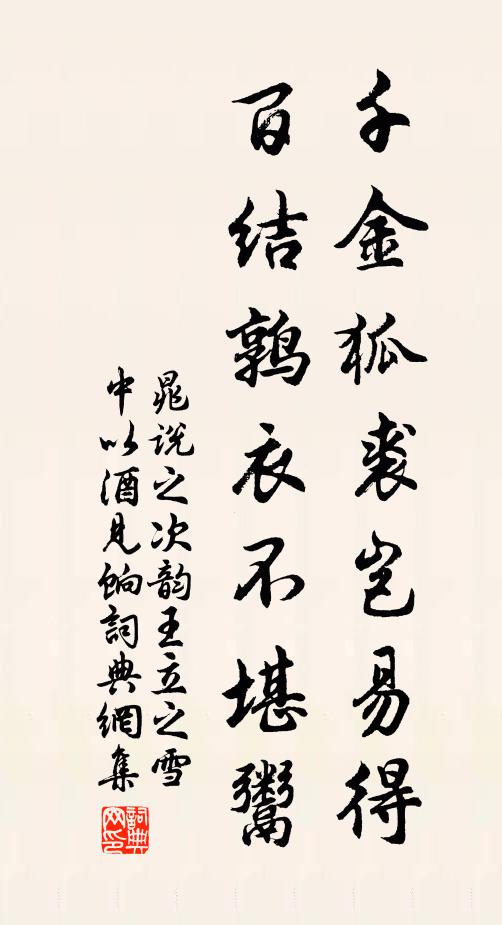 千金狐裘岂易得
百结鹑衣不堪鬻
晁说之次韵王立之雪
中以酒见饷詞典網集
詞典
网印